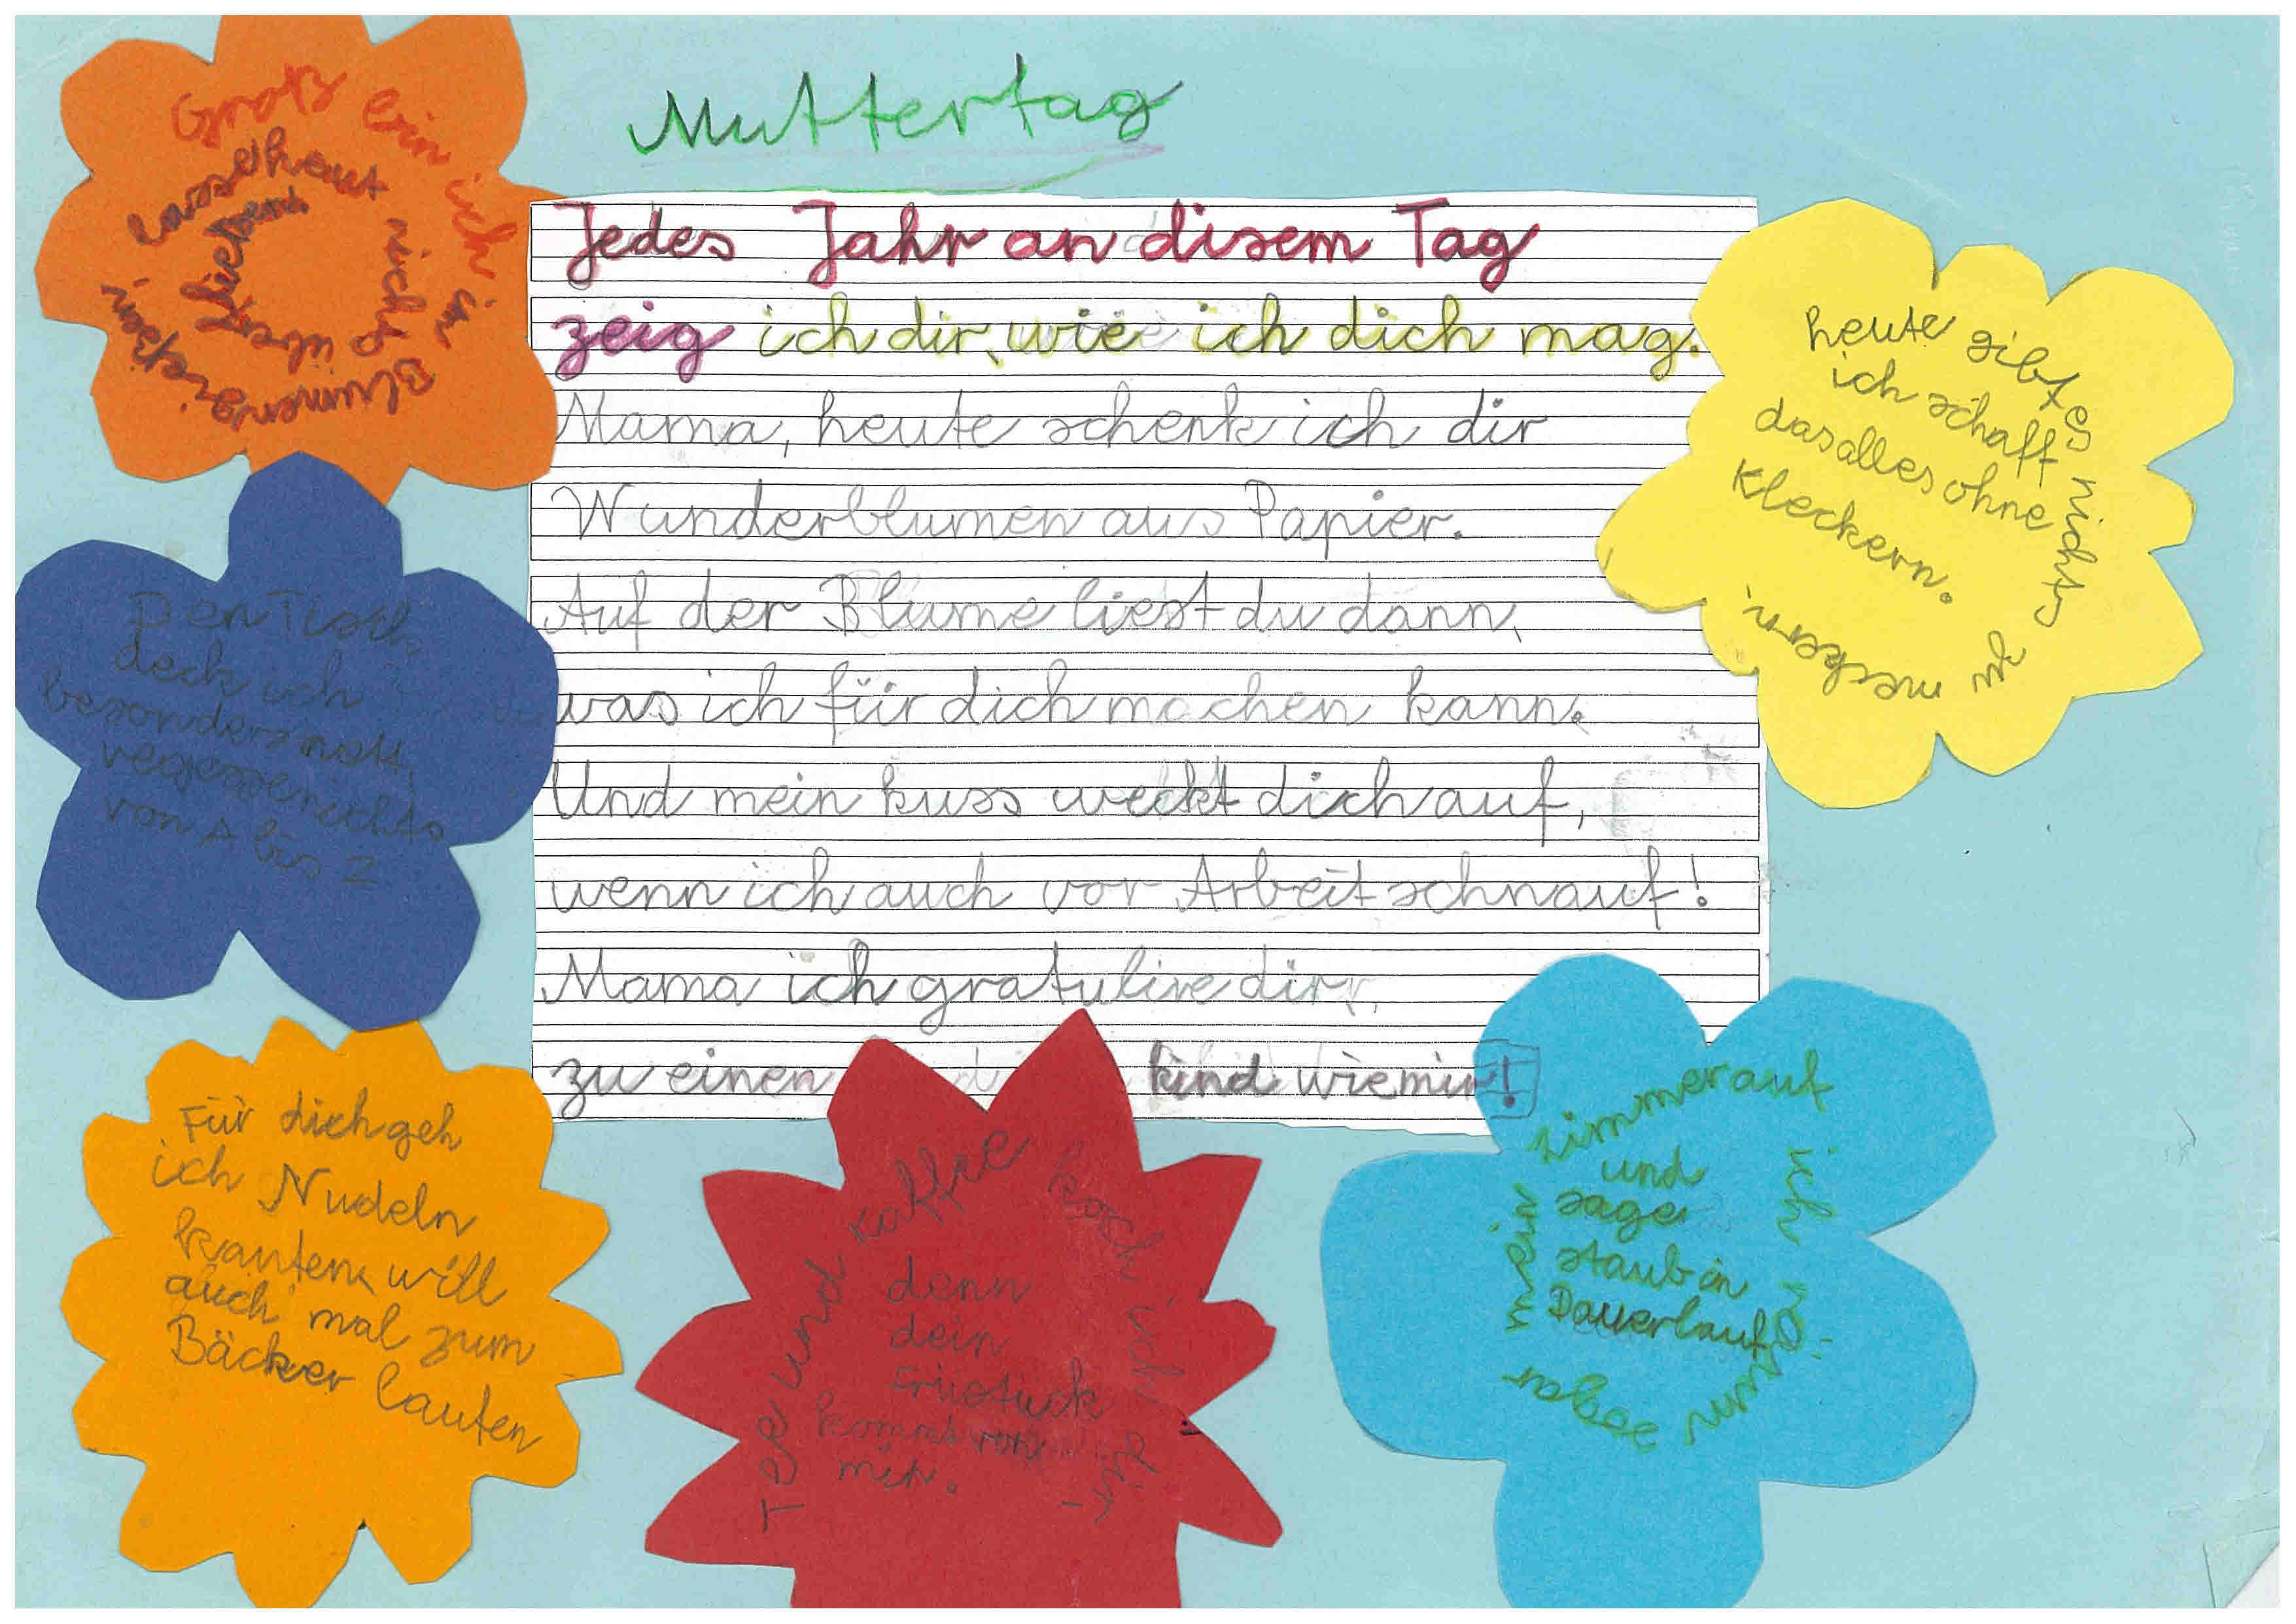 Muttertag
Jedes Jahr an disem Tag
zeig ich dir, wie ich dich mag.
Mama, heute schenk ich dir
Wunderblumen aus Papier.
Auf der Blume liest du dann,
was ich für dich machen kann.
Und mein kuss weckt dich auf,
wenn ich auch vor Arbeit schnauf!
Mama ich gratulire dir,
zu einen kind wie mir!
Groß ein ich im
Blumengießen
lasse haut nichts
über fließen
Den Tisch
deck ich
besonders nett,
vergesse nichts
von A bis Z
Für dich geh
ich Nudeln
kaufen, will
auch mal zum
Bäcker laufen
Tee und kaffee koch ich dir,
denn
dein
Früstück
kommt von
mir.
mein zimmer auf
ich räum sogar
und
sage
staub in
Dauerlauf
heute gibt es nichts zu meckern,
ich schaff
das alles ohne
Kleckern.